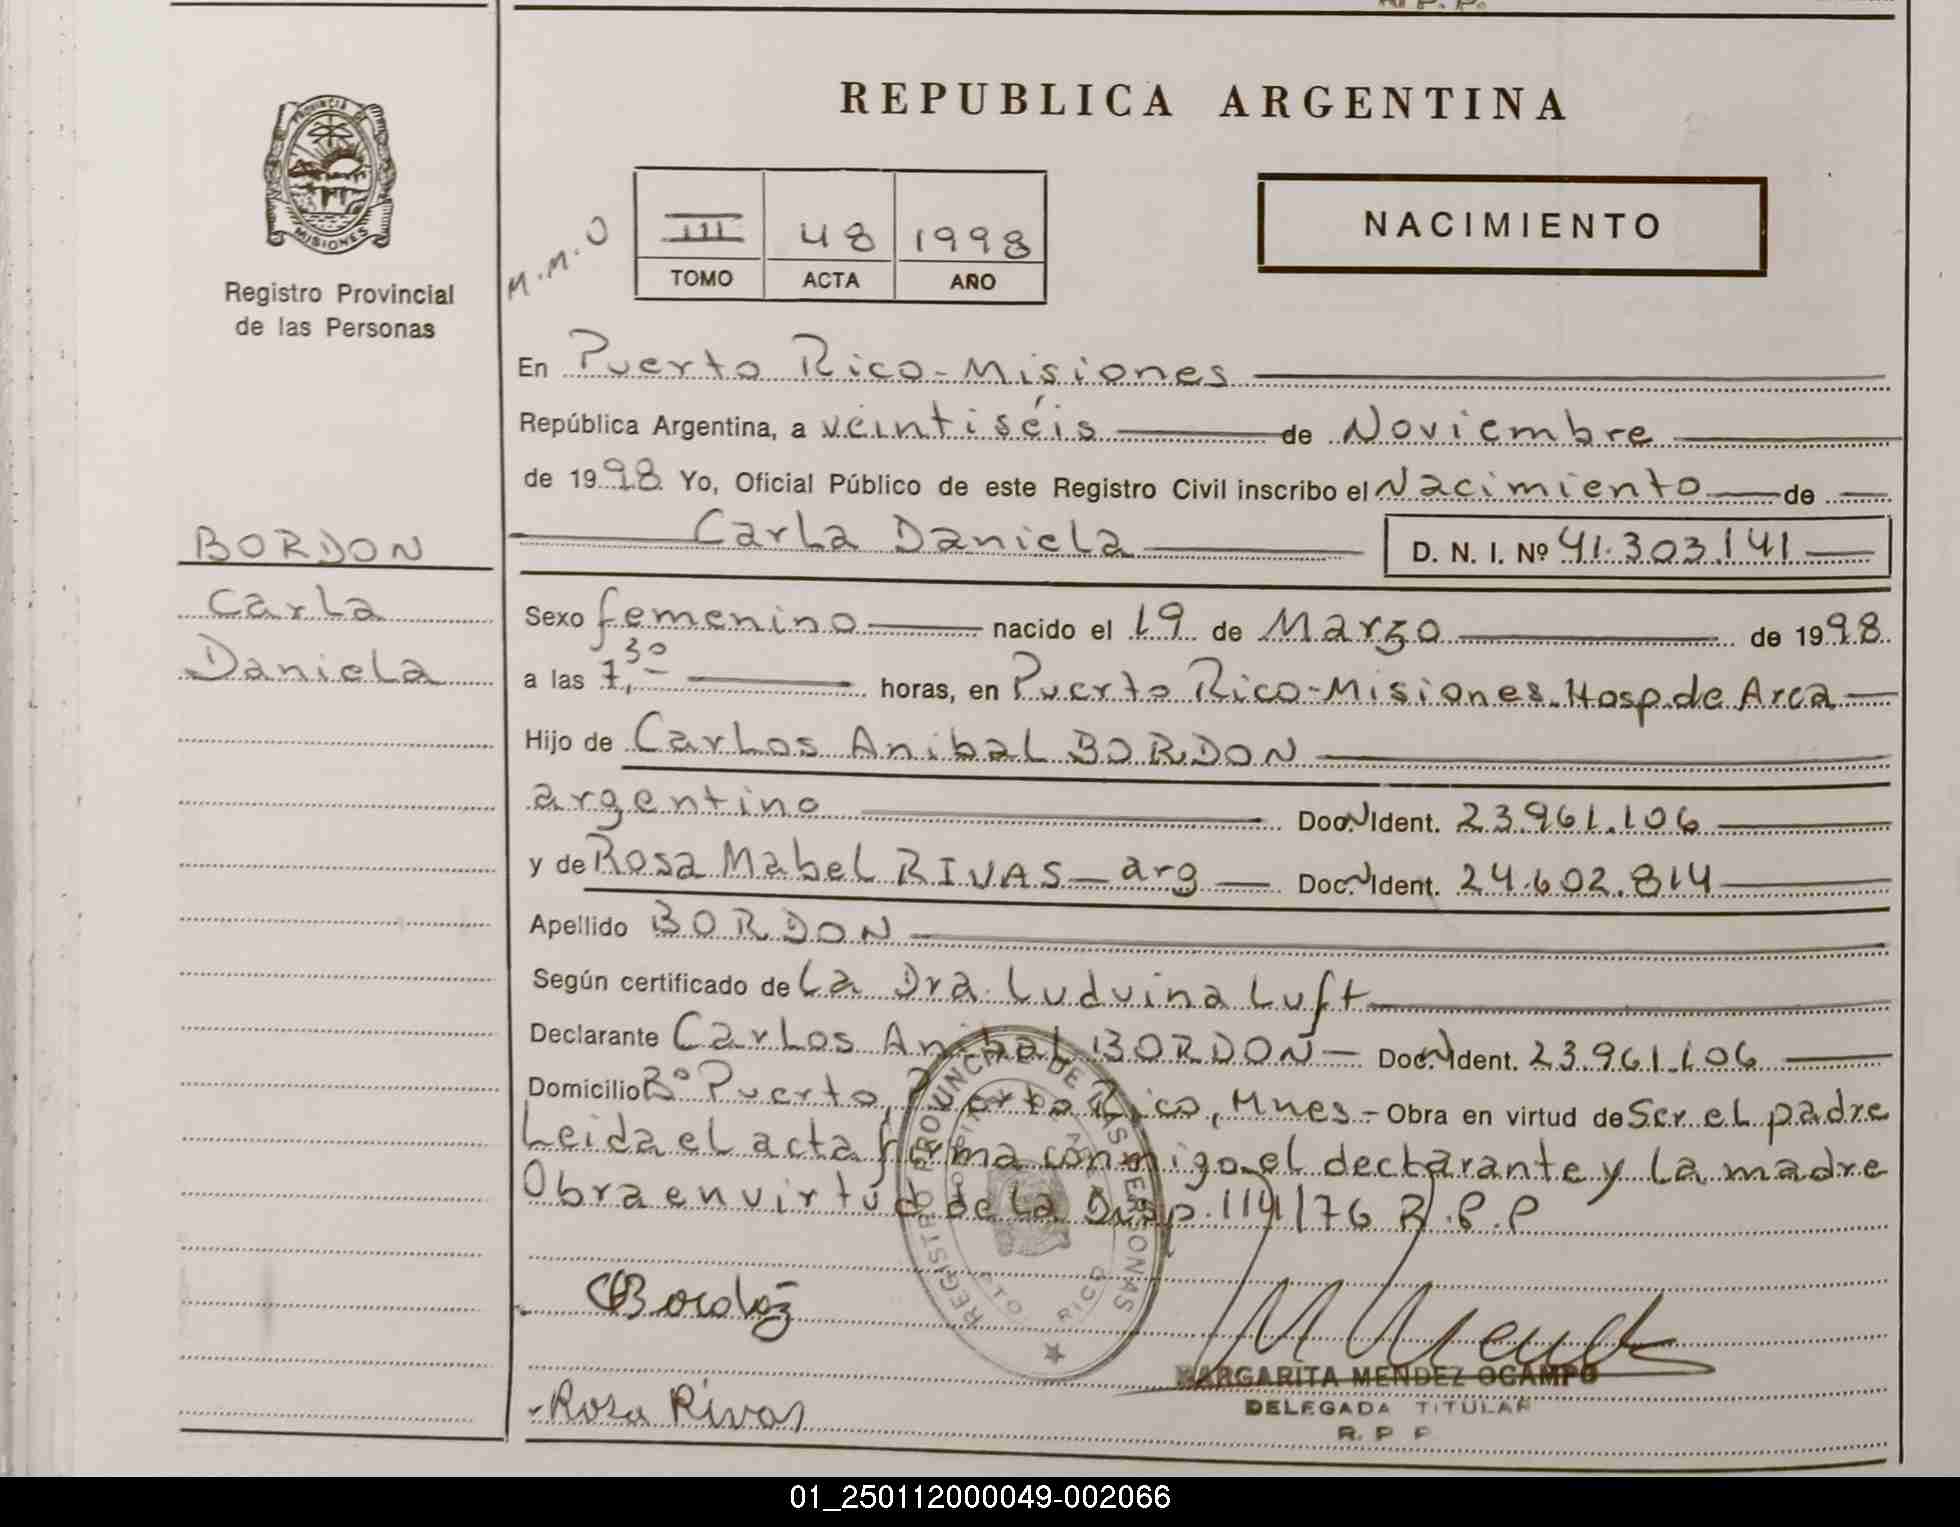 R. P. P.
REPUBLICA ARGENTINA
PROVINCIA DE
MISIONES
Registro Provincial
de las Personas
M.M.O
III 48 1998
TOMO ACTA AÑO
NACIMIENTO
En Puerto Rico-Misiones
República Argentina, a veintiséis de Noviembre
de 1998 Yo, Oficial Público de este Registro Civil inscribo el Nacimiento de
Carla Daniela D. N. I. Nº 41.303.141
BORDON
Carla
Daniela
Sexo femenino nacido el 19 de Marzo de 1998
a las 7,30 horas, en Puerto Rico-Misiones. Hosp. de Area
Hijo de Carlos Anibal BORDON
argentino Doc. N Ident. 23.961.106
y de Rosa Mabel RIVAS - arg Doc. N Ident. 24.602.814
Apellido BORDON
Según certificado de La Dra. Luduina Luft
Declarante Carlos Anibal BORDON - Doc. N Ident. 23.961.106
Domicilio Bº Puerto, Puerto Rico, Mnes - Obra en virtud de Ser el padre
Leida el acta firma conmigo el declarante y la madre
Obra en virtud de la Disp. 114/76 R.P.P
REGISTRO PROVINCIAL DE LAS PERSONAS
PTO RICO
CBordon
MARGARITA MENDEZ OCAMPO
DELEGADA TITULAR
R. P. P
Rosa Rivas
01_250112000049-002066